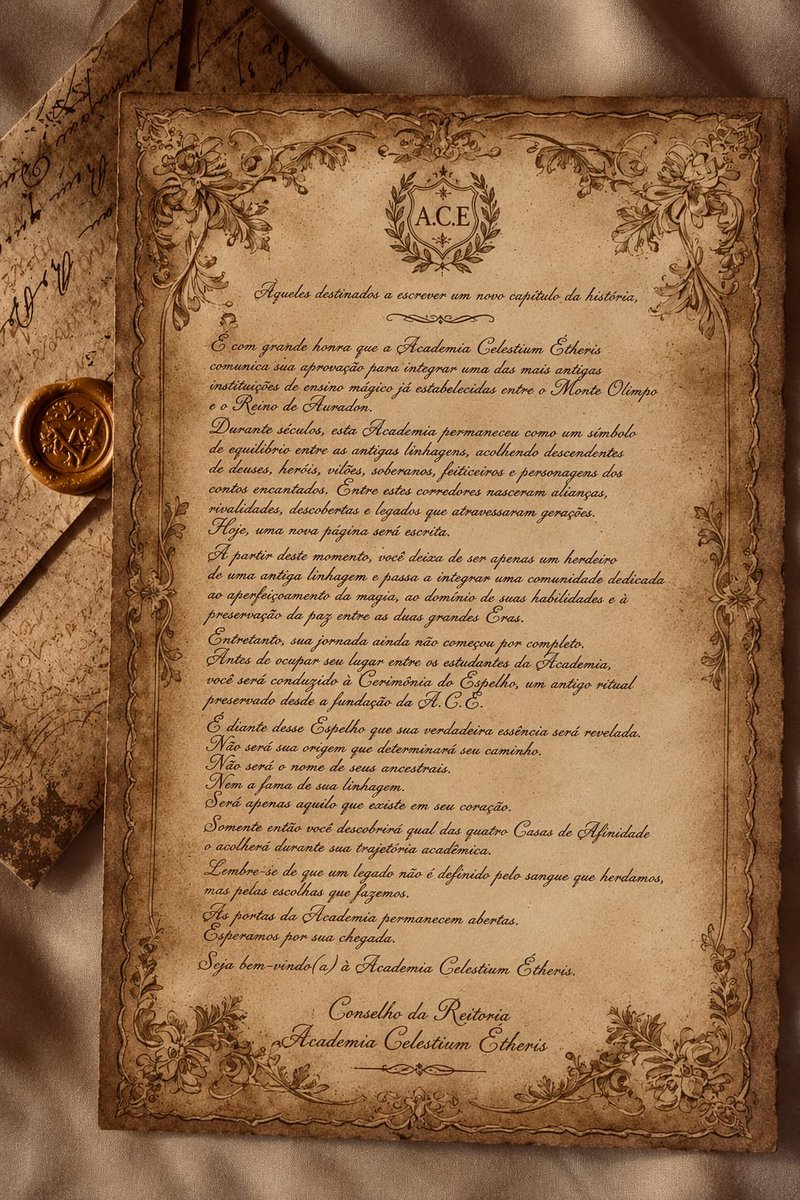 A.C.E
Àqueles destinados a escrever um novo capítulo da história,
É com grande honra que a Academia Celestium Étheris
comunica sua aprovação para integrar uma das mais antigas
instituições de ensino mágico já estabelecidas entre o Monte Olimpo
e o Reino de Auradon.
Durante séculos, esta Academia permaneceu como um símbolo
de equilíbrio entre as antigas linhagens, acolhendo descendentes
de deuses, heróis, vilões, soberanos, feiticeiros e personagens dos
contos encantados. Entre estes corredores nasceram alianças,
rivalidades, descobertas e legados que atravessaram gerações.
Hoje, uma nova página será escrita.
A partir deste momento, você deixa de ser apenas um herdeiro
de uma antiga linhagem e passa a integrar uma comunidade dedicada
ao aperfeiçoamento da magia, ao domínio de suas habilidades e à
preservação da paz entre as duas grandes Eras.
Entretanto, sua jornada ainda não começou por completo.
Antes de ocupar seu lugar entre os estudantes da Academia,
você será conduzido à Cerimônia do Espelho, um antigo ritual
preservado desde a fundação da A.C.E.
É diante desse Espelho que sua verdadeira essência será revelada.
Não será sua origem que determinará seu caminho.
Não será o nome de seus ancestrais.
Nem a fama de sua linhagem.
Será apenas aquilo que existe em seu coração.
Somente então você descobrirá qual das quatro Casas de Afinidade
o acolherá durante sua trajetória acadêmica.
Lembre-se de que um legado não é definido pelo sangue que herdamos,
mas pelas escolhas que fazemos.
As portas da Academia permanecem abertas.
Esperamos por sua chegada.
Seja bem-vindo(a) à Academia Celestium Étheris.
Conselho da Reitoria
Academia Celestium Étheris